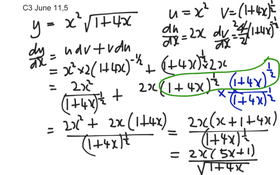 C3 June 11,5
y = x² √(1+4x)
u = x² v = (1+4x)^½
du/dx = 2x
dy/dx = u dv + v du
= x² × 2(1+4x)^-½ + (1+4x)^½ 2x
= 2x²/(1+4x)^½ + 2x (1+4x)^½ × (1+4x)^½/(1+4x)^½
= 2x² + 2x(1+4x)/(1+4x)^½ = 2x(x+1+4x)/(1+4x)^½
= 2x(5x+1)/√(1+4x)